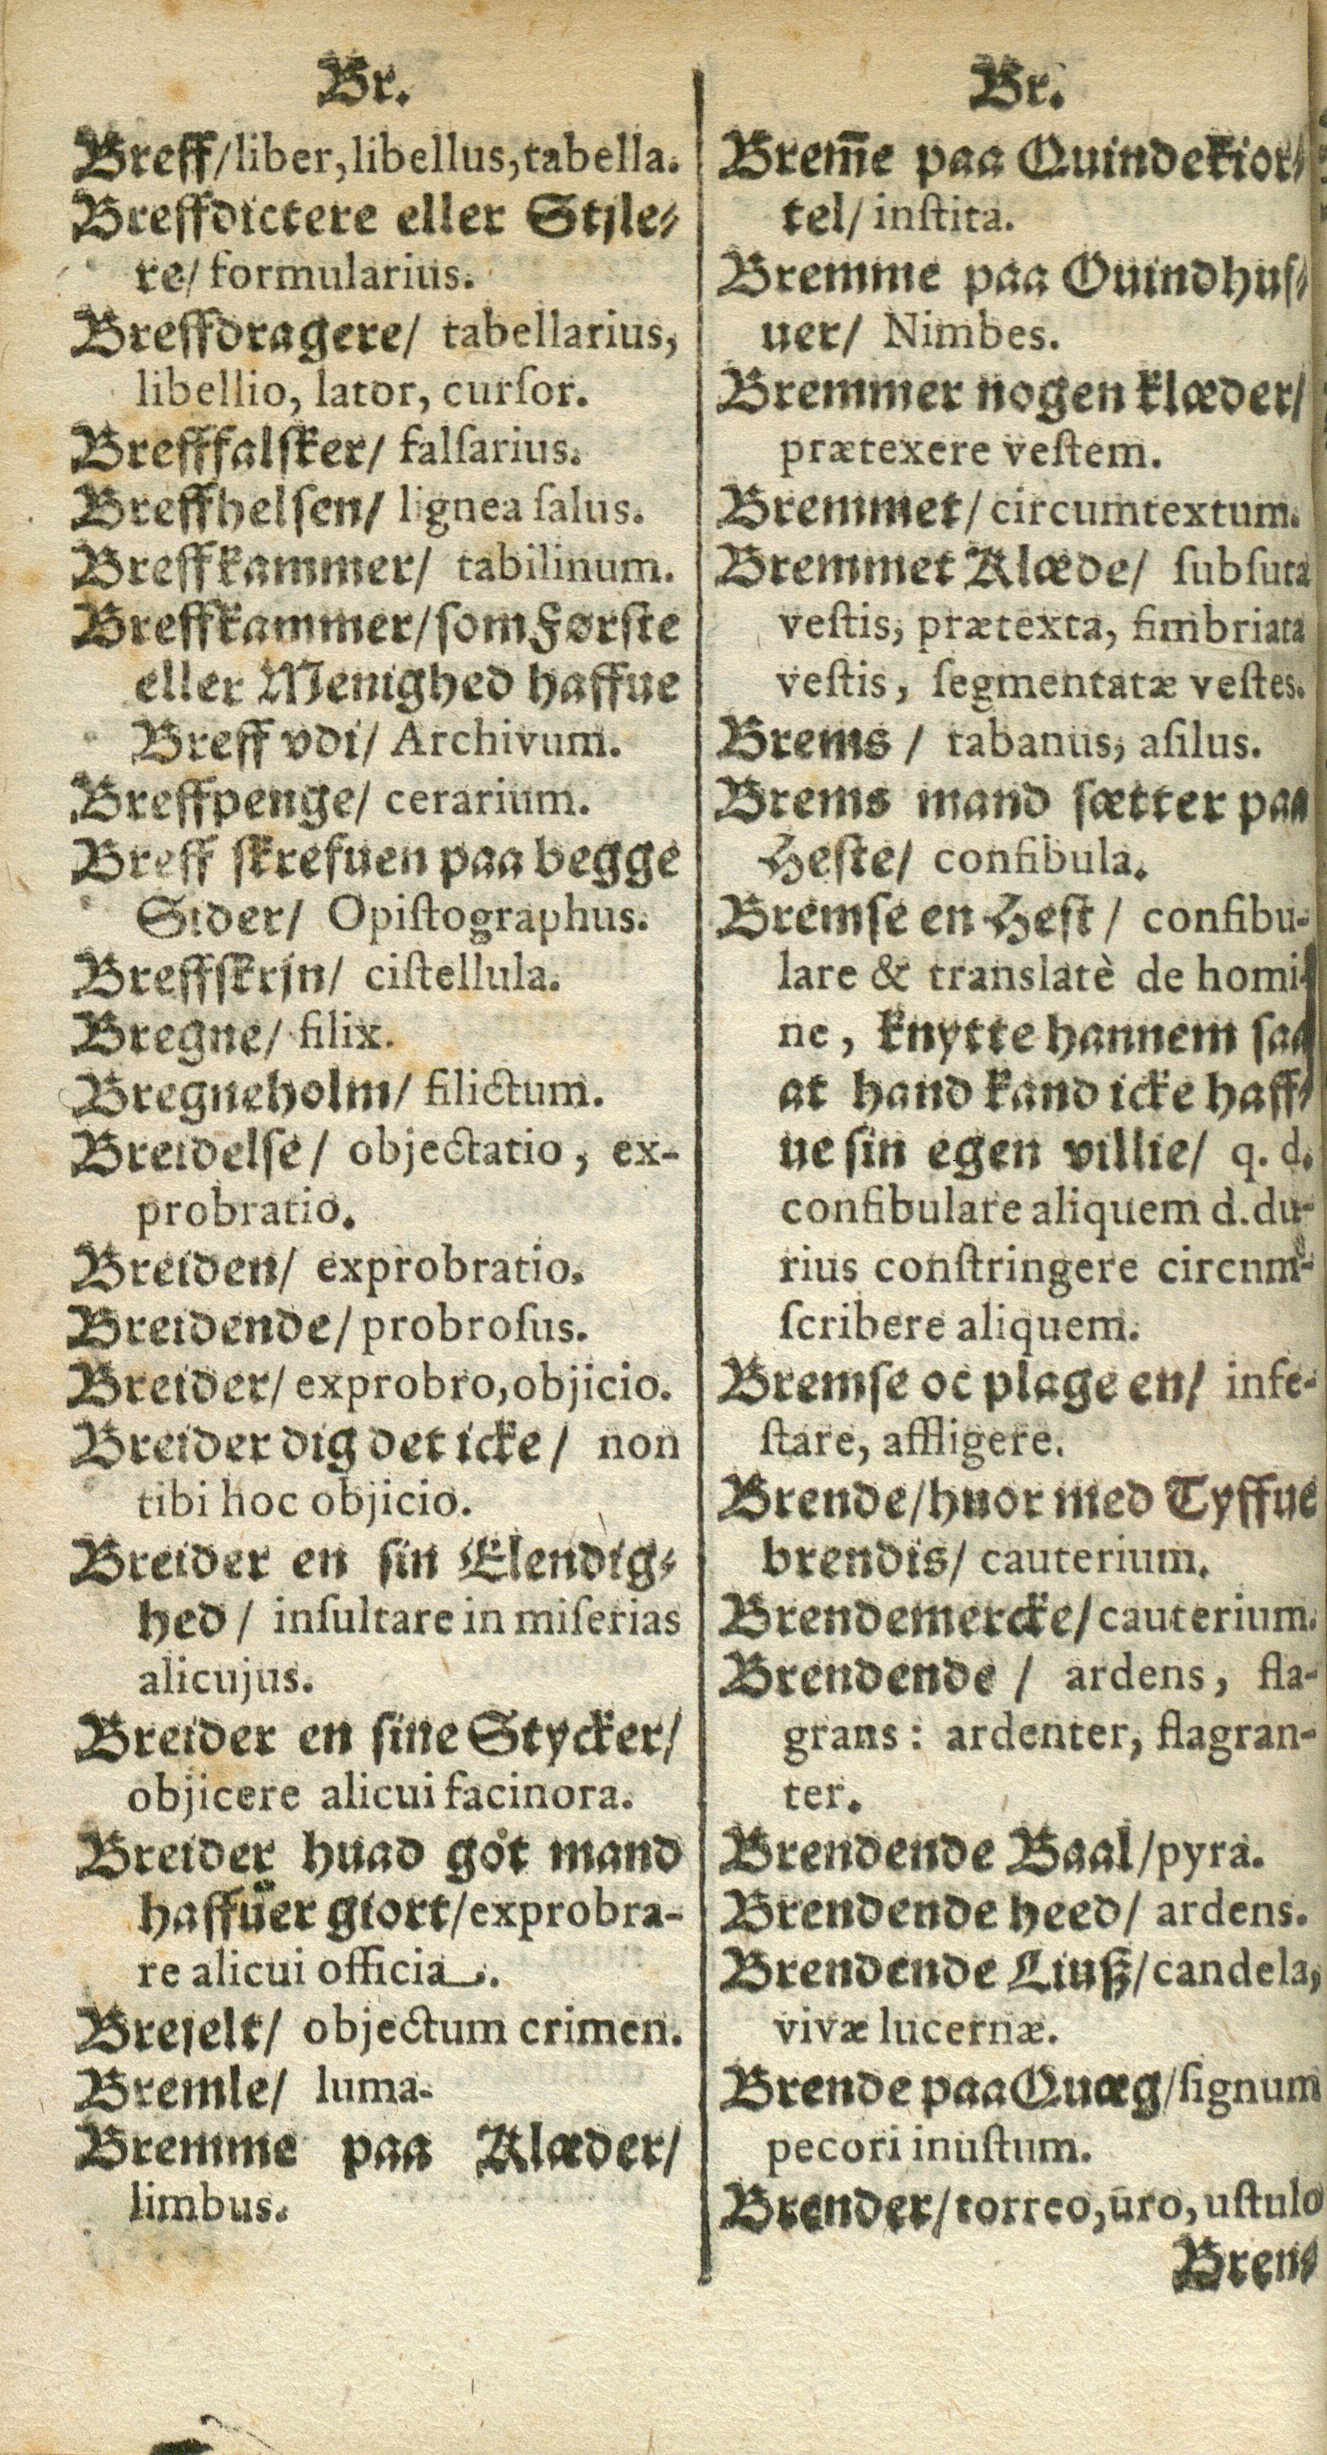 Br.
Breff/liber, libellus, tabella.
Breffdictere eller Stjle-
re/ formularius.
Breffdragere/ tabellarius,
libellio, lator, curſor.
Brefffalſker/ falſarius.
Breffhelſen/ lignea ſalus.
Breffkammer/ tabilinum.
Breffkammer/ſom Første
eller Menighed haffue
Breff vdi/ Archivum.
Breffpenge/ cerarium.
Breff ſkrefuen paa begge
Sider/ Opiſtographus.
Breffſkrjn/ ciſtellula.
Bregne/ filix.
Bregneholm/ filictum.
Breidelſe/ objectatio, ex-
probratio.
Breiden/ exprobratio.
Breidende/ probroſus.
Breider/ exprobro, objicio.
Breider dig det icke/ non
tibi hoc objicio.
Breider en ſin Elendig-
hed/ inſultare in miſerias
alicujus.
Breider en ſine Stycker/
objicere alicui facinora.
Breider huad got mand
haffuer giort/exprobra-
re alicui officia.
Brejelt/ objectum crimen.
Bremle/ luma.
Bremme paa Klæder/
limbus.
Br.
Brem̅e paa Quindekior-
tel/ inſtita.
Bremme paa Quindhuſ-
uer/ Nimbes.
Bremmer nogen klæder/
prætexere veſtem.
Bremmet/ circumtextum.
Bremmet Klæde/ ſubſuta
veſtis, prætexta, fimbriata
veſtis, ſegmentatæ veſtes.
Brems/ tabanus, aſilus.
Brems mand ſætter paa
Heſte/ confibula.
Bremſe en Heſt/ confibu-
lare & translatè de homi-
ne, knytte hannem ſaa
at hand kand icke haff-
ue ſin egen villie/ q. d.
confibulare aliquem d. du-
rius conſtringere circnm-
ſcribere aliquem.
Bremſe oc plage en/ infe-
ſtare, affligere.
Brende/huor med Tyffue
brendis/ cauterium.
Brendemercke/ cauterium.
Brendende/ ardens, fla-
grans: ardenter, flagran-
ter.
Brendende Baal/pyra.
Brendende heed/ ardens.
Brendende Liuß/candela,
vivæ lucernæ.
Brende paa Quæg/ſignum
pecori inuſtum.
Brender/torreo, uro, uſtulo
Bren-